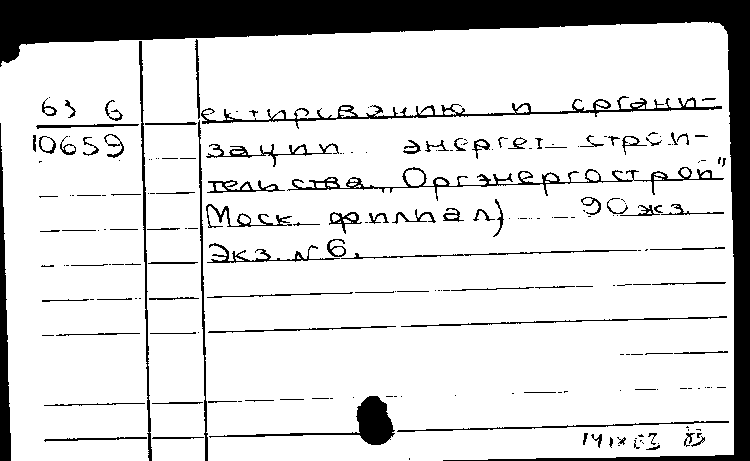 63 6
10659
ектированию и органи-
зации энергет. строи-
тельства „Оргэнергострой"
Моск. филиал) 90 экз.
Экз. N 6.